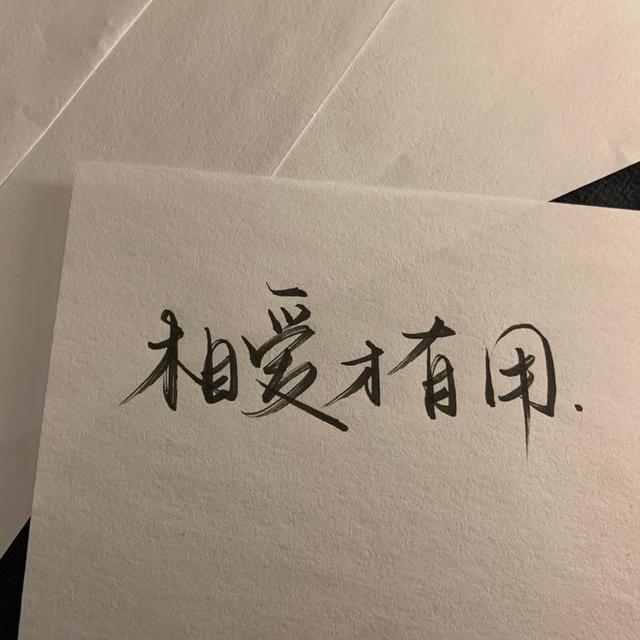 相爱才有用.